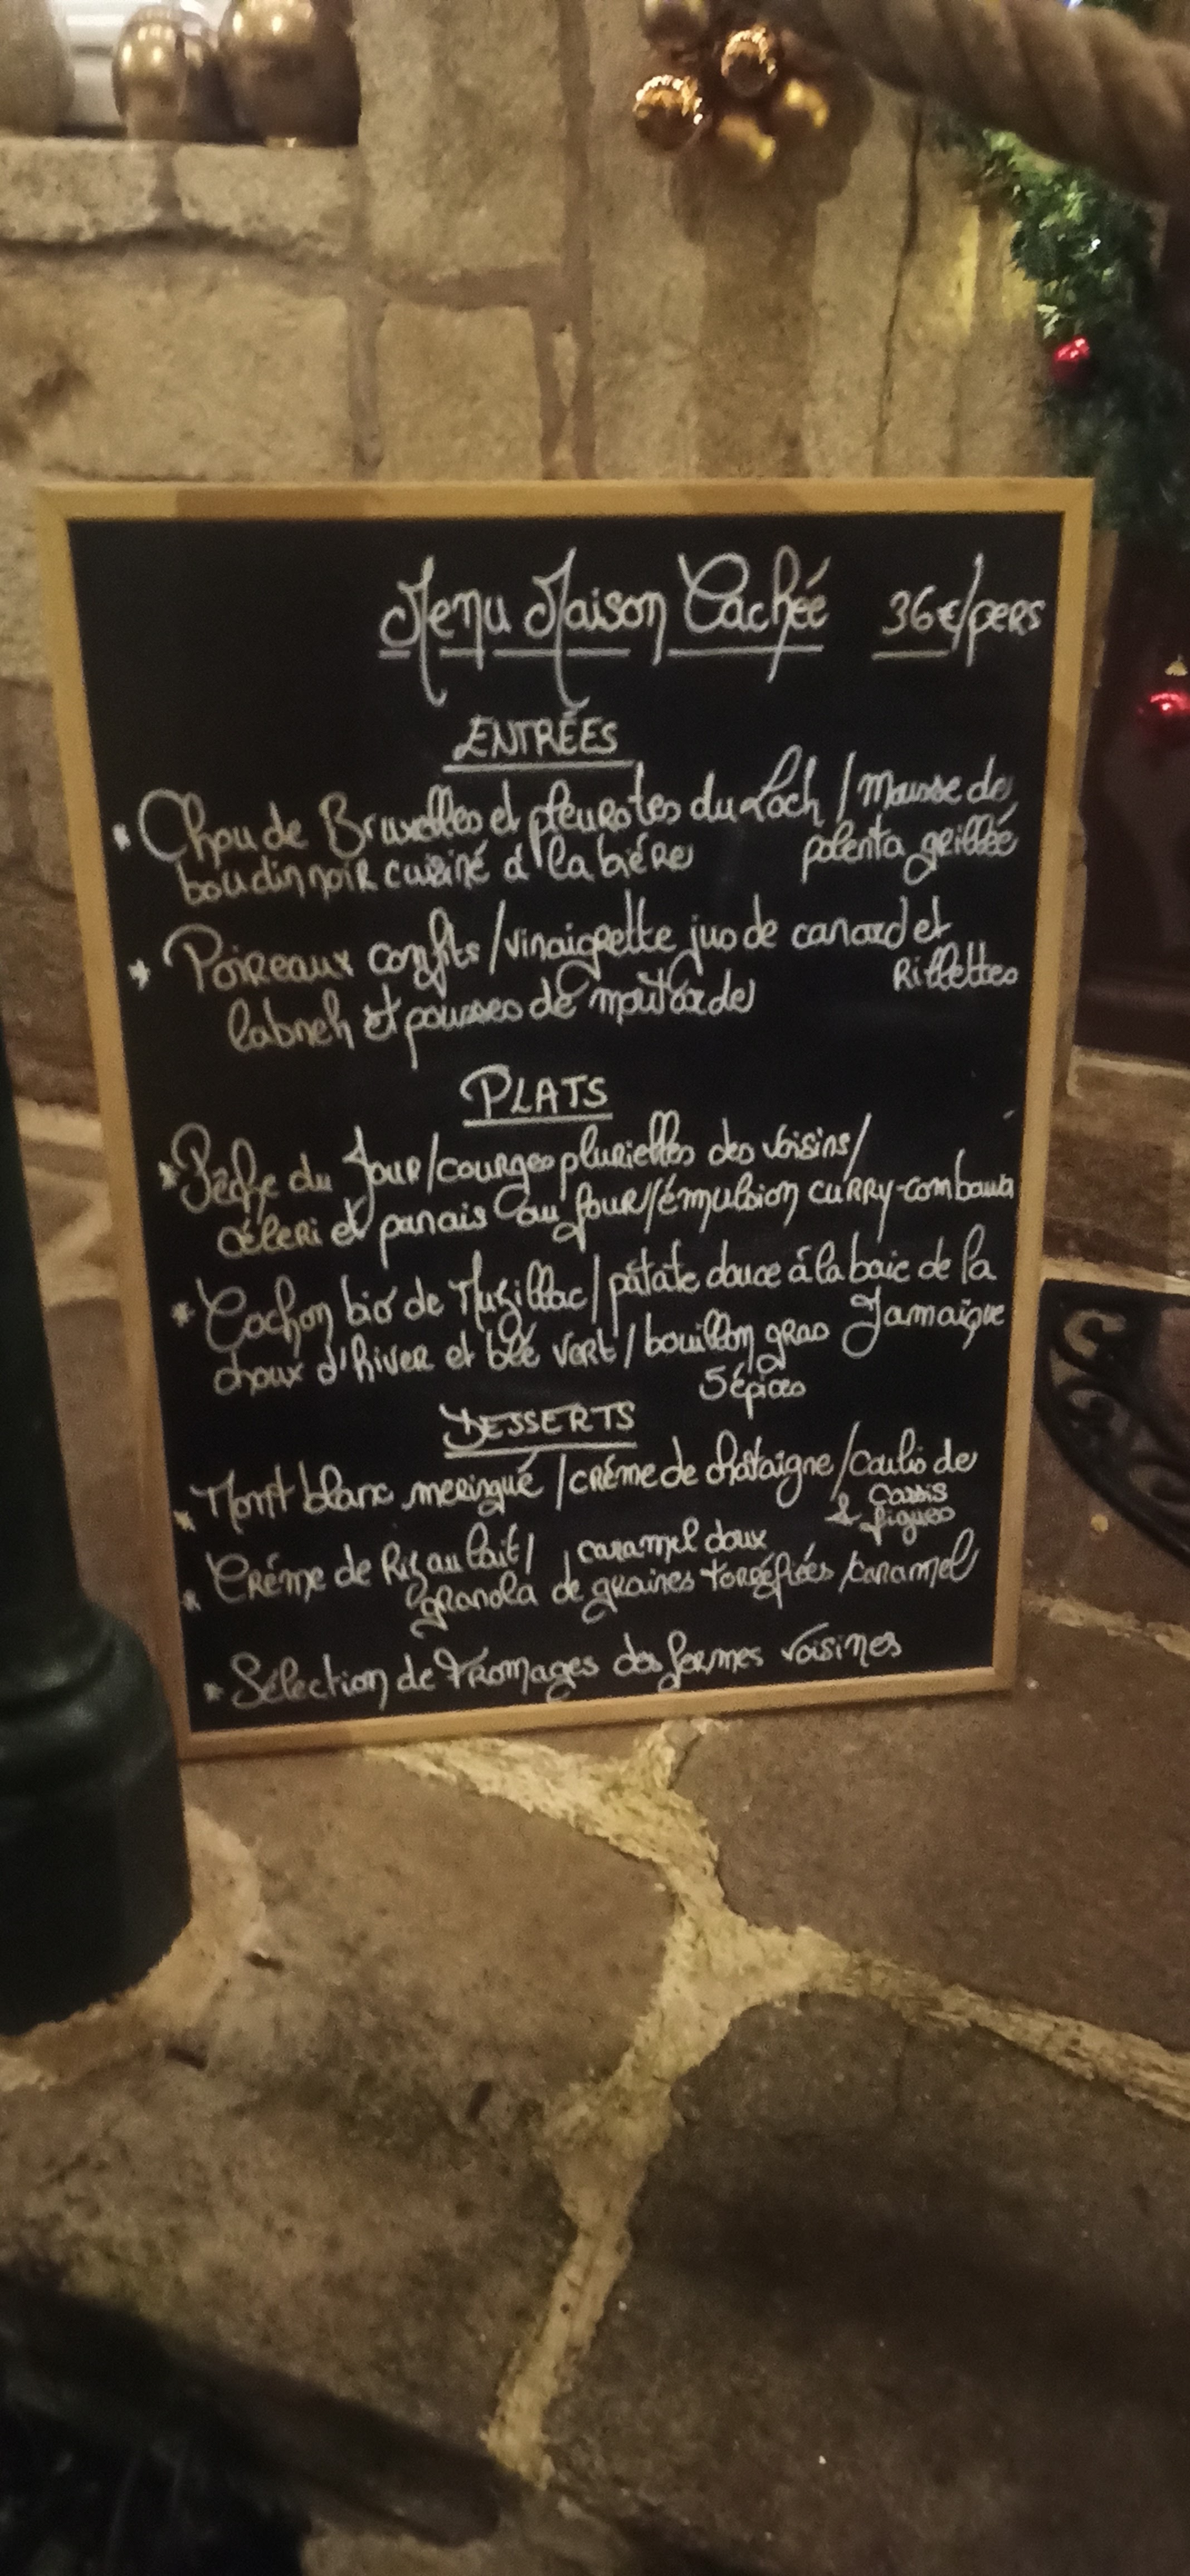 Menu Maison Cachée 36€/pers
ENTRÉES
* Chou de Bruxelles et pleurotes du Loch / Mousse de
boudin noir cuisiné à la bière polenta grillée
* Poireaux confits / vinaigrette jus de canard et
Rillettes
labneh et pousses de moutarde
PLATS
* Pêche du Jour / courges plurielles des voisins /
céleri et panais au four / émulsion CURRY-combawa
* Cochon bio de Muzillac / patate douce à la baie de la
choux d'hiver et blé vert / bouillon gras Jamaïque
5 épices
DESSERTS
* Mont blanc meringué / crème de châtaigne / coulis de
Cassis
& figues
* Crème de Riz au lait / caramel doux
granola de graines torréfiées / caramel
* Sélection de Fromages des fermes voisines